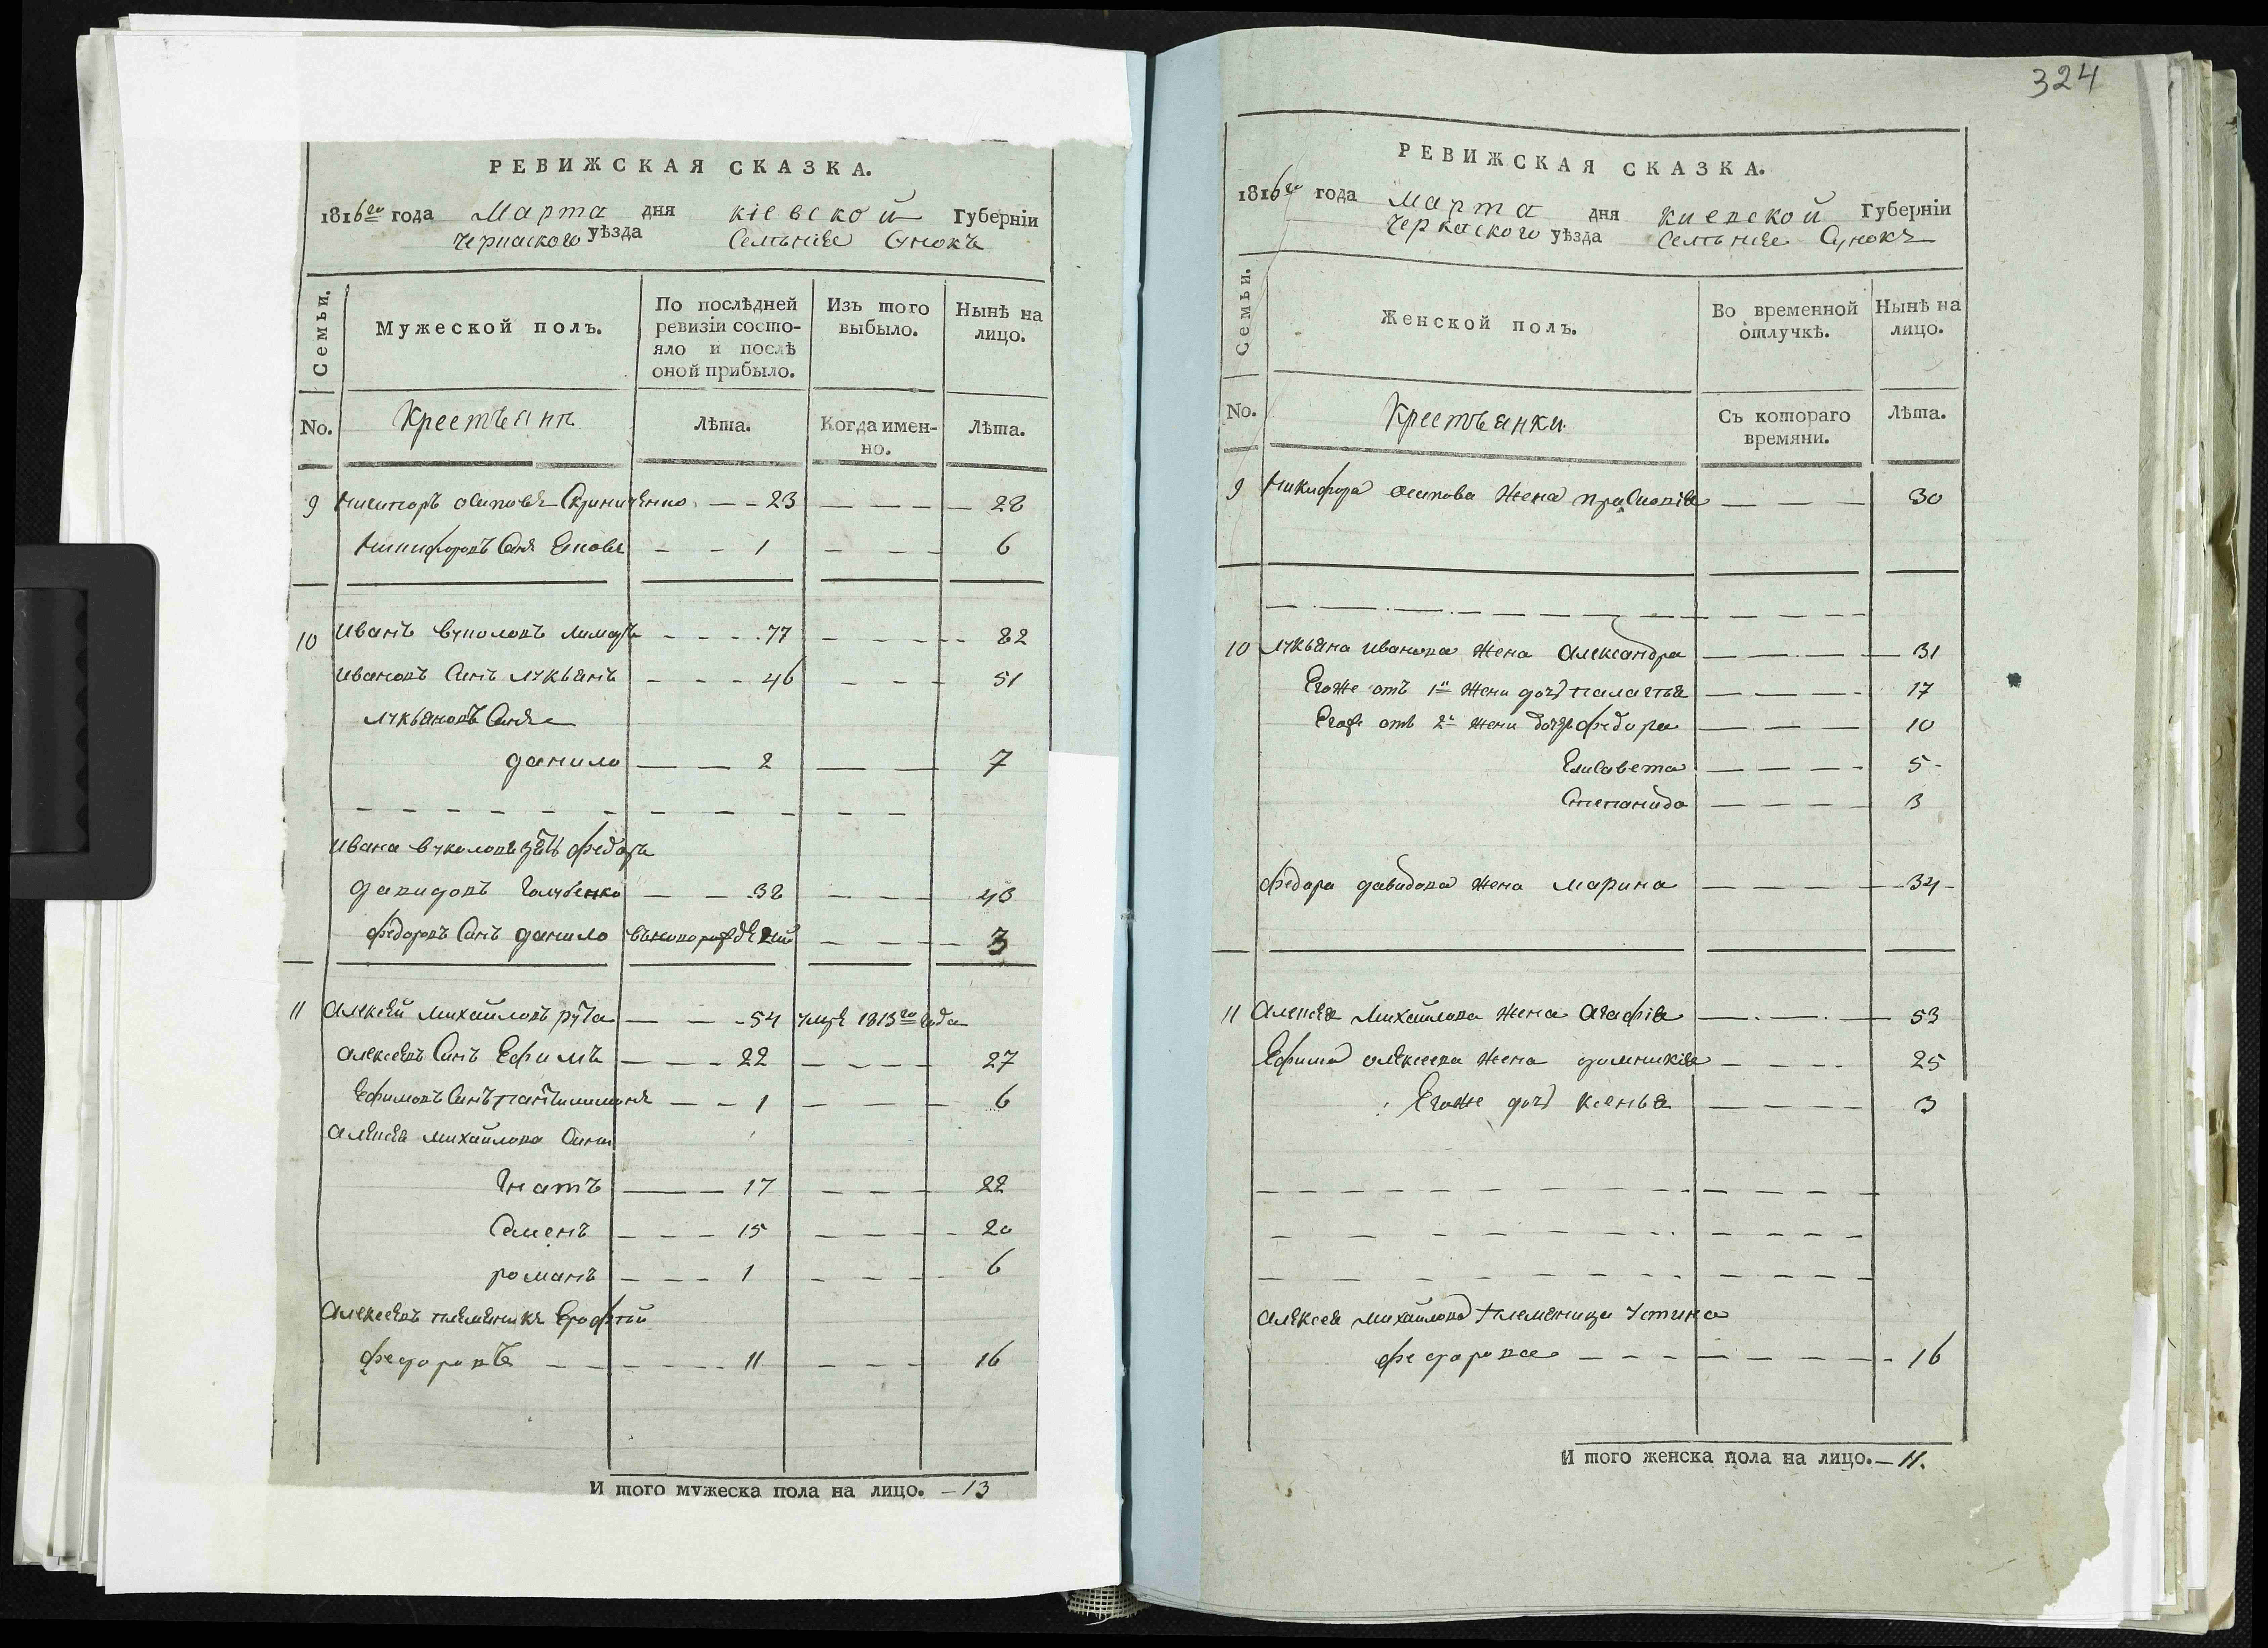 РЕВИЖСКАЯ СКАЗКА.
1816го года Марта дня кіевской Губерніи
черкаского уѣзда Селѣнїе Сунокъ
Семьи.
Мужеской полъ.
По послѣдней ревизіи состояло и послѣ оной прибыло.
Изъ того выбыло.
Нынѣ на лицо.
No. Крестъянъ Лѣта. Когда именно. Лѣта.
9 Осиповъ 23 28
Никифоровъ Синъ 1 6
10 Иванъ вуколовъ 77 82
Ивановъ Синъ лукъянъ 46 51
лукъяновъ Синъ
данило 2 7
Ивана вуколова зять федоръ
давидовъ Голубенко 38 43
федоровъ Синъ данило 3
11 Алексѣй михайловъ рута 54 умре 1813го года
Алексѣевъ Синъ Ефимъ 22 27
Ефимовъ Синъ 1 6
Алексѣя михайлова Сини
Гнатъ 17 22
Семенъ 15 20
романъ 1 6
Алексѣевъ племѣникъ Ерофтѣй
федоровъ 11 16
И того мужеска пола на лицо. 13
324
РЕВИЖСКАЯ СКАЗКА.
1816го года Марта дня киевской Губерніи
черкаского уѣзда Селѣнїе Сунокъ
Семьи.
Женской полъ.
Во временной отлучкѣ.
Нынѣ на лицо.
No. Крестъянки Съ котораго времяни. Лѣта.
9 Никифора осипова жена 30
10 лукьяна иванова жена Александра 31
Егоже отъ 1й жени дочь палагтья 17
Егоже отъ 2й жени дочери федора 10
Елисавета 5
Степанида 3
федора давидова жена марина 34
11 Алексѣя Михайлова жена Агафія 53
Ефима алѣксеева жена домникія 25
Егоже дочь ксенья 3
Алѣксея михайлова племѣница Устина
федорова 16
И того женска пола на лицо. 11.